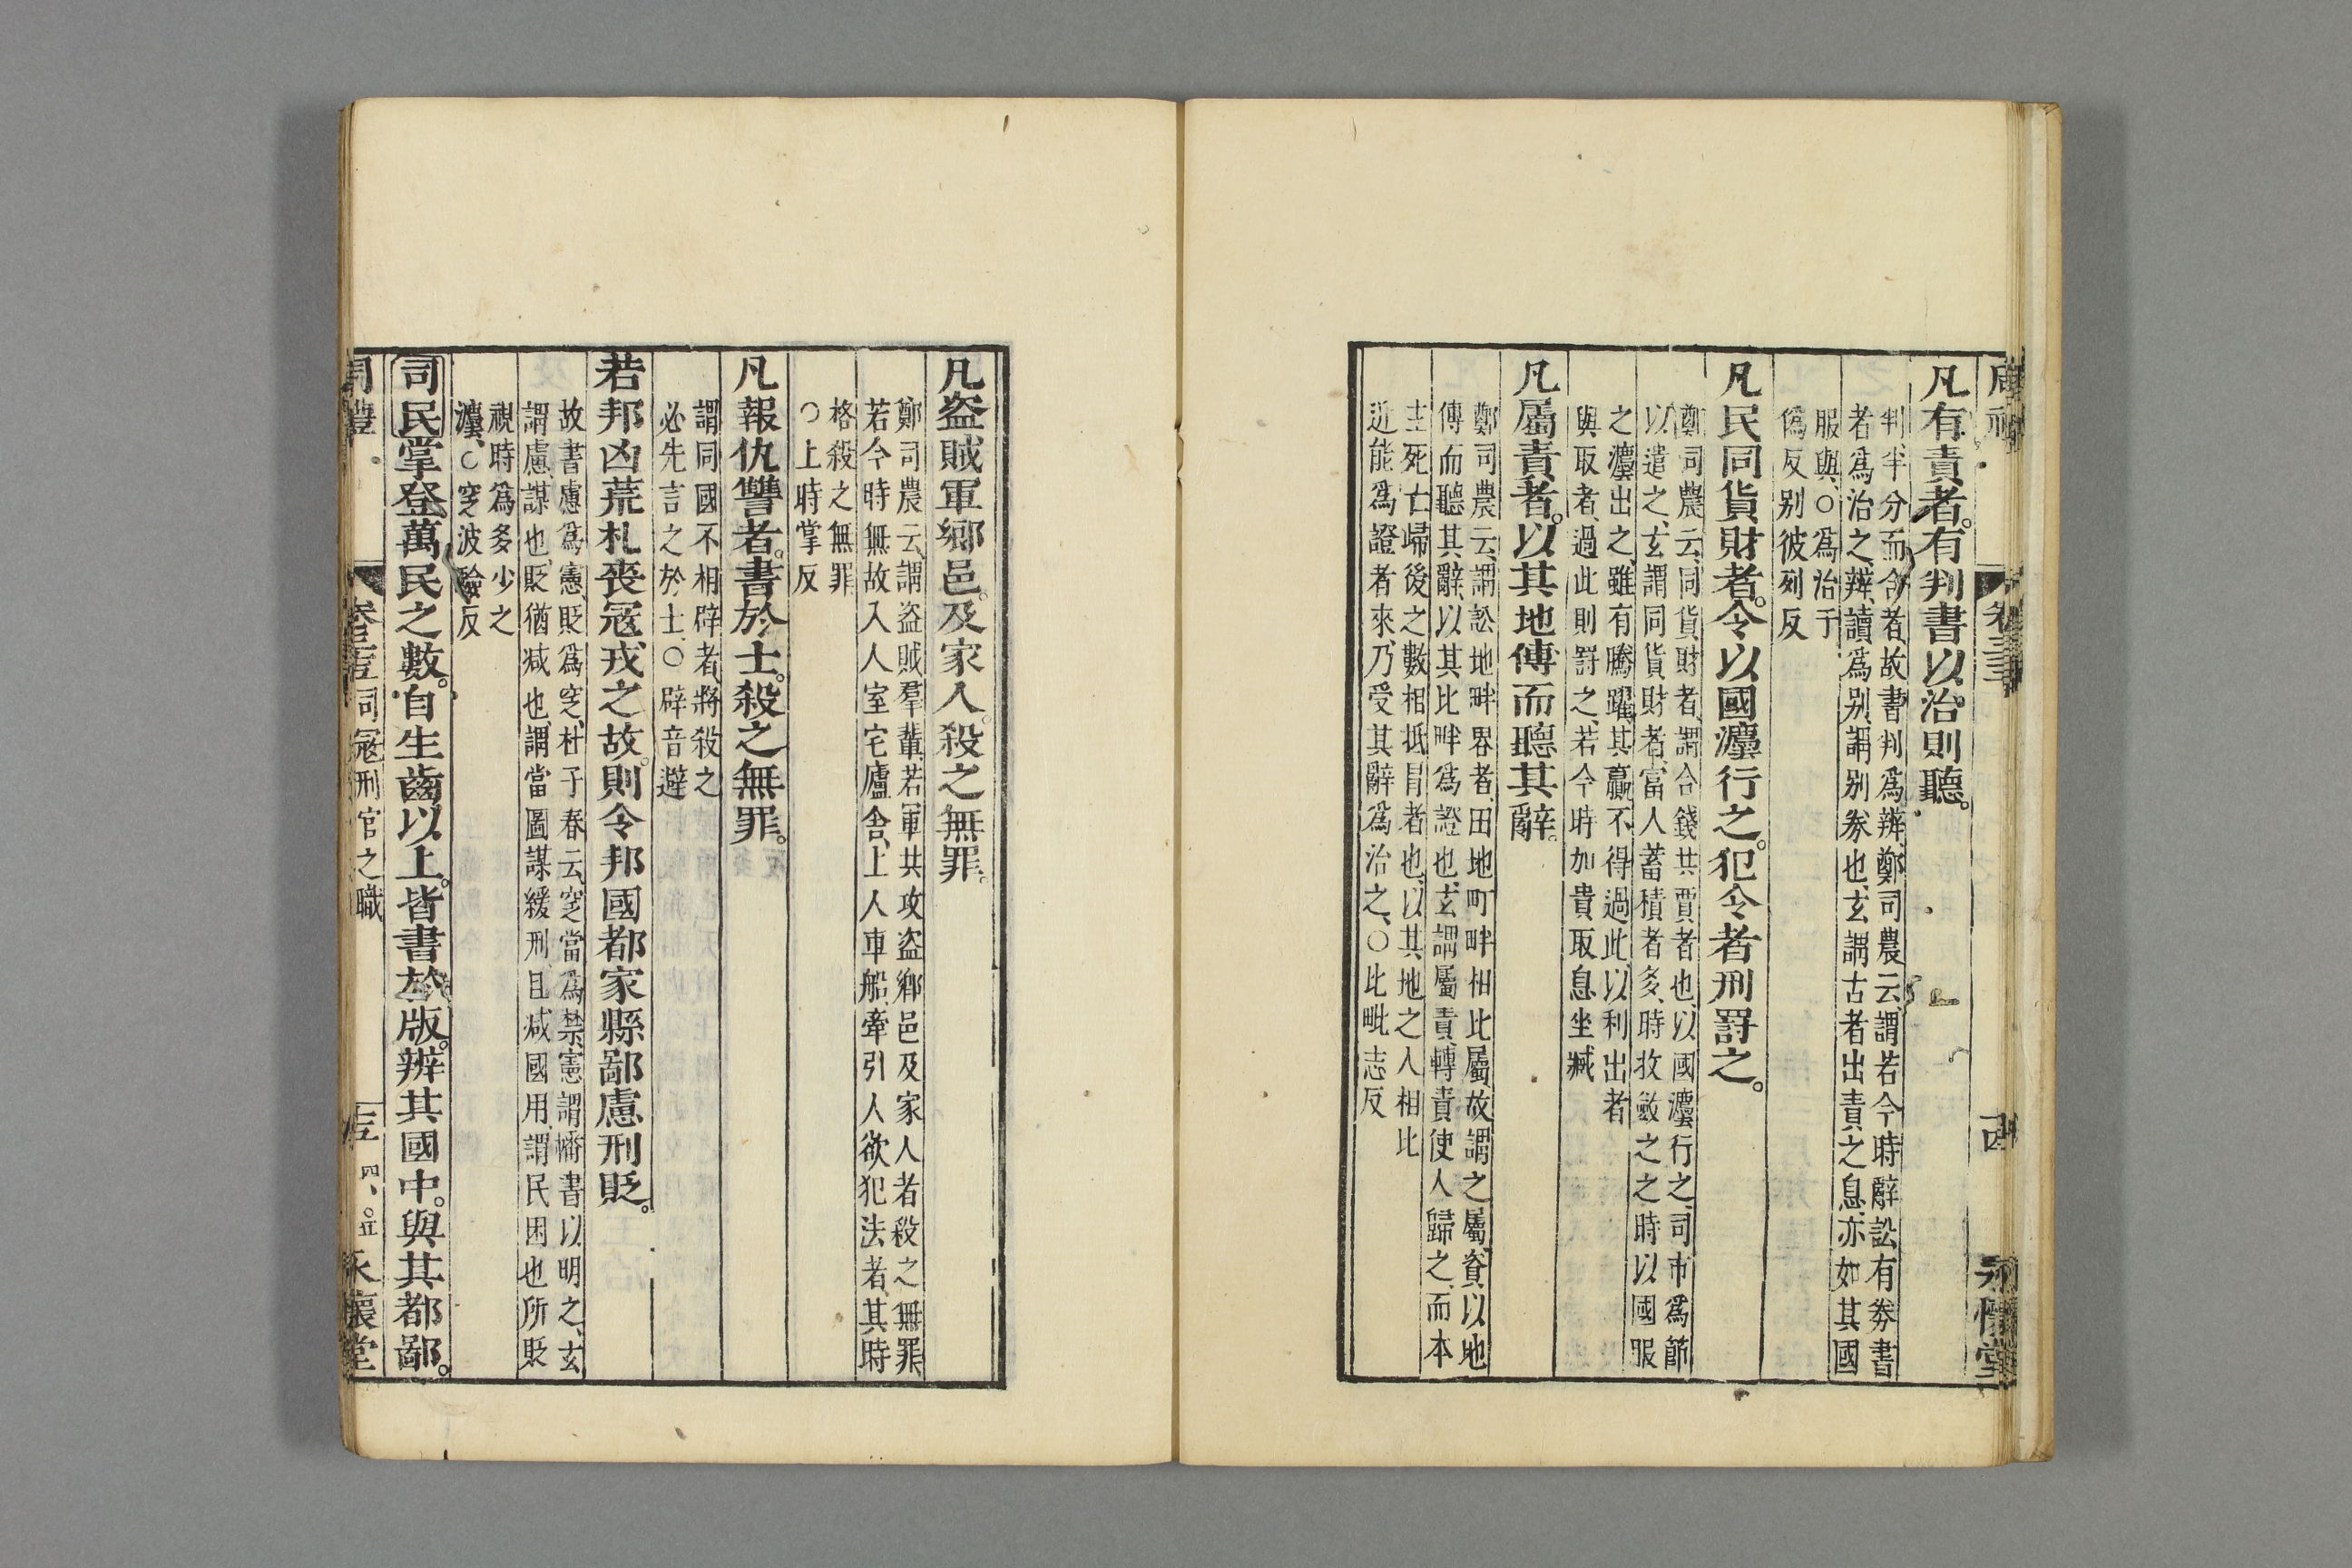 凡有責者。有判書以治。則聽。
判半分而合者、故書判爲辨、鄭司農云、謂若今時辭訟有券書
者爲治之、辨讀爲別、謂別券也、玄謂古者出責之息、亦如其國
服與、○爲治于
僞反別彼列反
凡民同貨財者。令以國灋行之。犯令者刑罰之。
鄭司農云、同貨財者、謂合錢共賈者也、以國灋行之、司市爲節
以遣之、玄謂同貨財者、富人蓄積者多、時收斂之之時以國服
之灋出之、雖有騰躍、其贏不得過此、以利出者
與取者、過此則罰之、若今時加貴取息坐臧
凡屬責者。以其地傅而聽其辭。
鄭司農云、謂訟地畔界者、田地町畔相比屬、故謂之屬責、以地
傅而聽其辭、以其比畔爲證也、玄謂屬責、轉責使人歸之、而本
主死亡、歸後之數相抵冒者也、以其地之人相比
近能爲證者來乃受其辭爲治之、○比毗志反
凡盜賊軍鄉邑。及家人。殺之無罪。
鄭司農云、謂盜賊羣輩、若軍共攻盜鄉邑及家人者殺之無罪、
若今時無故入人室宅廬舍、上人車船、牽引人欲犯法者、其時
格殺之無罪
○上時掌反
凡報仇讐者。書於士。殺之無罪。
謂同國不相辟者、將殺之
必先言之於士、○辟音避
若邦凶荒札喪寇戎之故。則令邦國都家縣鄙慮刑貶。
故書慮爲憲、貶爲窆、杜子春云、窆當爲禁、憲謂幡書以明之、玄
謂慮、謀也、貶猶減也、謂當圖謀緩刑、且減國用、謂民困也、所貶
視時爲多少之
灋、○窆波驗反
司民掌登萬民之數。自生齒以上。皆書於版。辨其國中。與其都鄙。
周禮 卷三十五 司寇刑官之職 十五 永懷堂